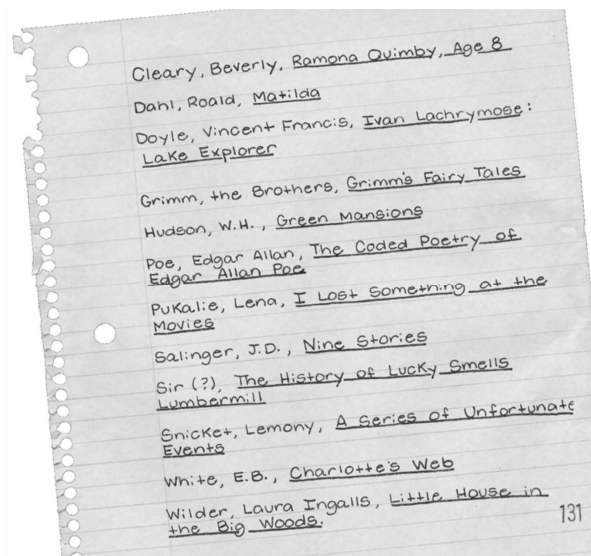 Cleary, Beverly, Ramona Quimby, Age 8
Dahl, Roald, Matilda
Doyle, Vincent Francis, Ivan Lachrymose:
Lake Explorer
Grimm, the Brothers, Grimm's Fairy Tales
Hudson, W.H., Green Mansions
Poe, Edgar Allan, The Coded Poetry of
Edgar Allan Poe
Pukalie, Lena, I Lost Something at the
Movies
Salinger, J.D., Nine Stories
Sir (?), The History of Lucky Smells
Lumbermill
Snicket, Lemony, A Series of Unfortunate
Events
White, E.B., Charlotte's Web
Wilder, Laura Ingalls, Little House in
the Big Woods.
131